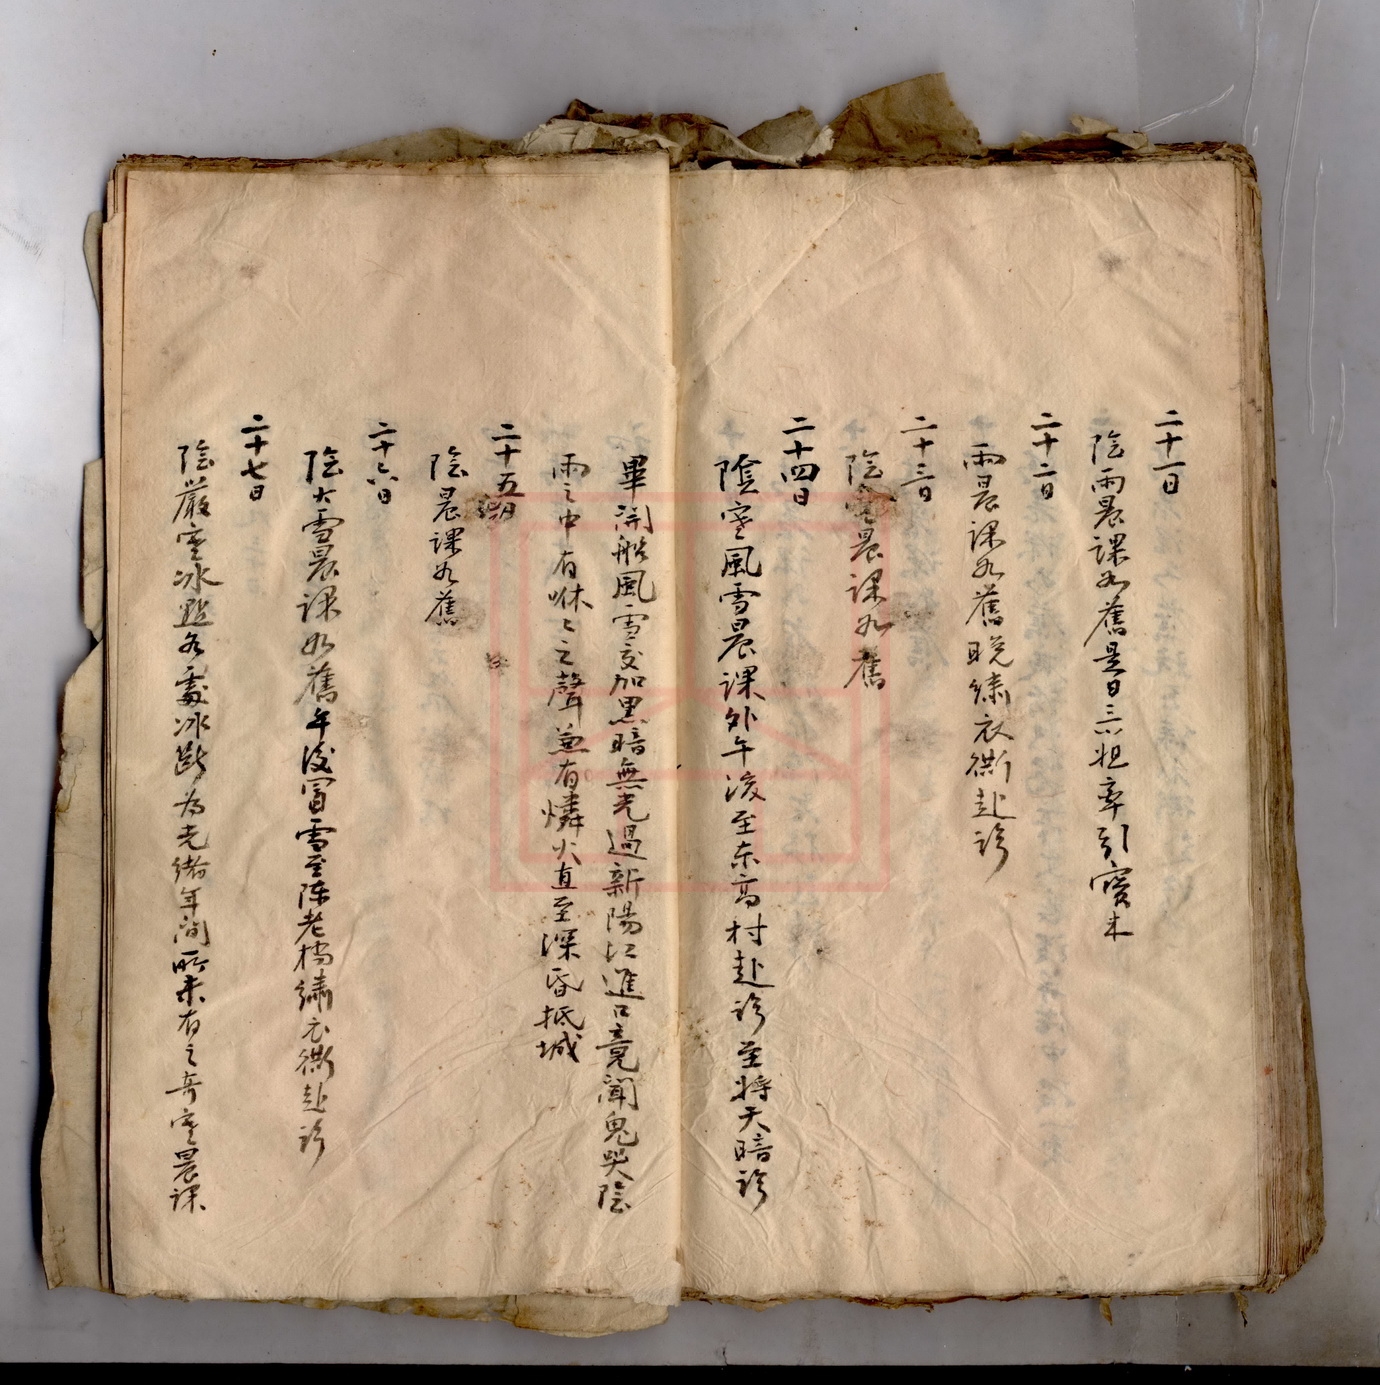 二十一日
陰雨晨課如舊是日三六担牽引寶木
二十二日
雨晨課如舊晚繡衣衖赴診
二十三日
陰寒晨課如舊
二十四日
陰寒風雪晨課外午後至东高村赴診至將天暗診
畢開船風雪交加黑暗無光過新陽江進口竟聞鬼哭陰
雨之中有咻之之聲兼有燐火直至深昏抵城
二十五日
陰晨課如舊
二十六日
陰大雪晨課如舊午後冒雪至陈老橋繡衣衖赴診
二十七日
陰嚴寒冰點各處冰斷为光緒年间所未有之奇寒晨課